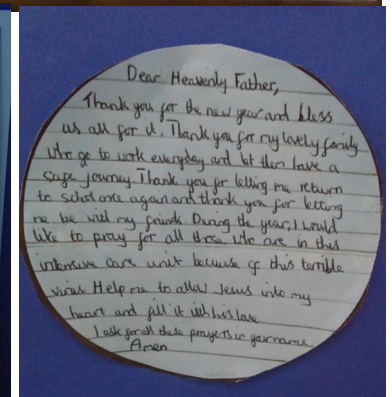 Dear Heavenly Father,
Thank you for the new year and bless
us all for it. Thank you for my lovely family
who go to work everyday and let them have a
safe journey. Thank you for letting me return
to school once again and thank you for letting
me be with my friends. During the year, I would
like to pray for all those who are in this
intensive care unit because of this terrible
virus. Help me to allow Jesus into my
heart and fill it with his love
I ask for all these prayers in your name
Amen